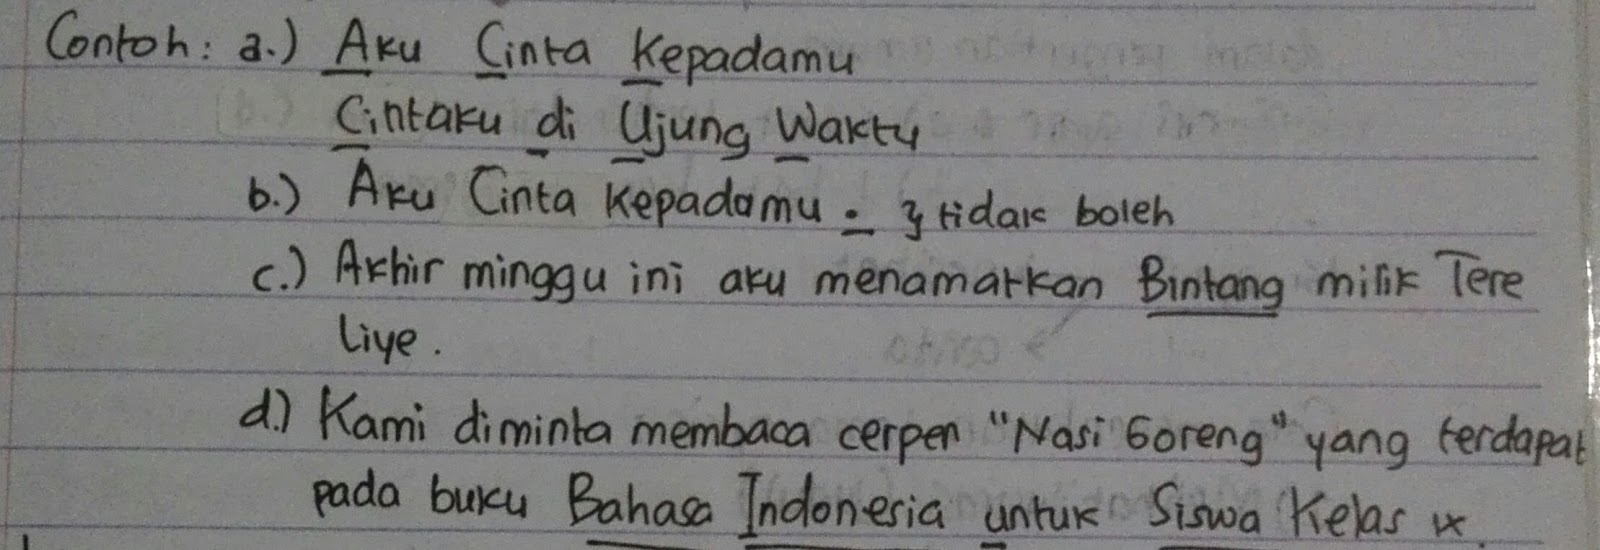 Contoh: a.) Aku Cinta Kepadamu
Cintaku di Ujung Waktu
b.) Aku Cinta Kepadamu. } tidak boleh
c.) Akhir minggu ini aku menamatkan Bintang milik Tere
Liye.
d.) Kami diminta membaca cerpen "Nasi Goreng" yang terdapat
pada buku Bahasa Indonesia untuk Siswa Kelas IX.